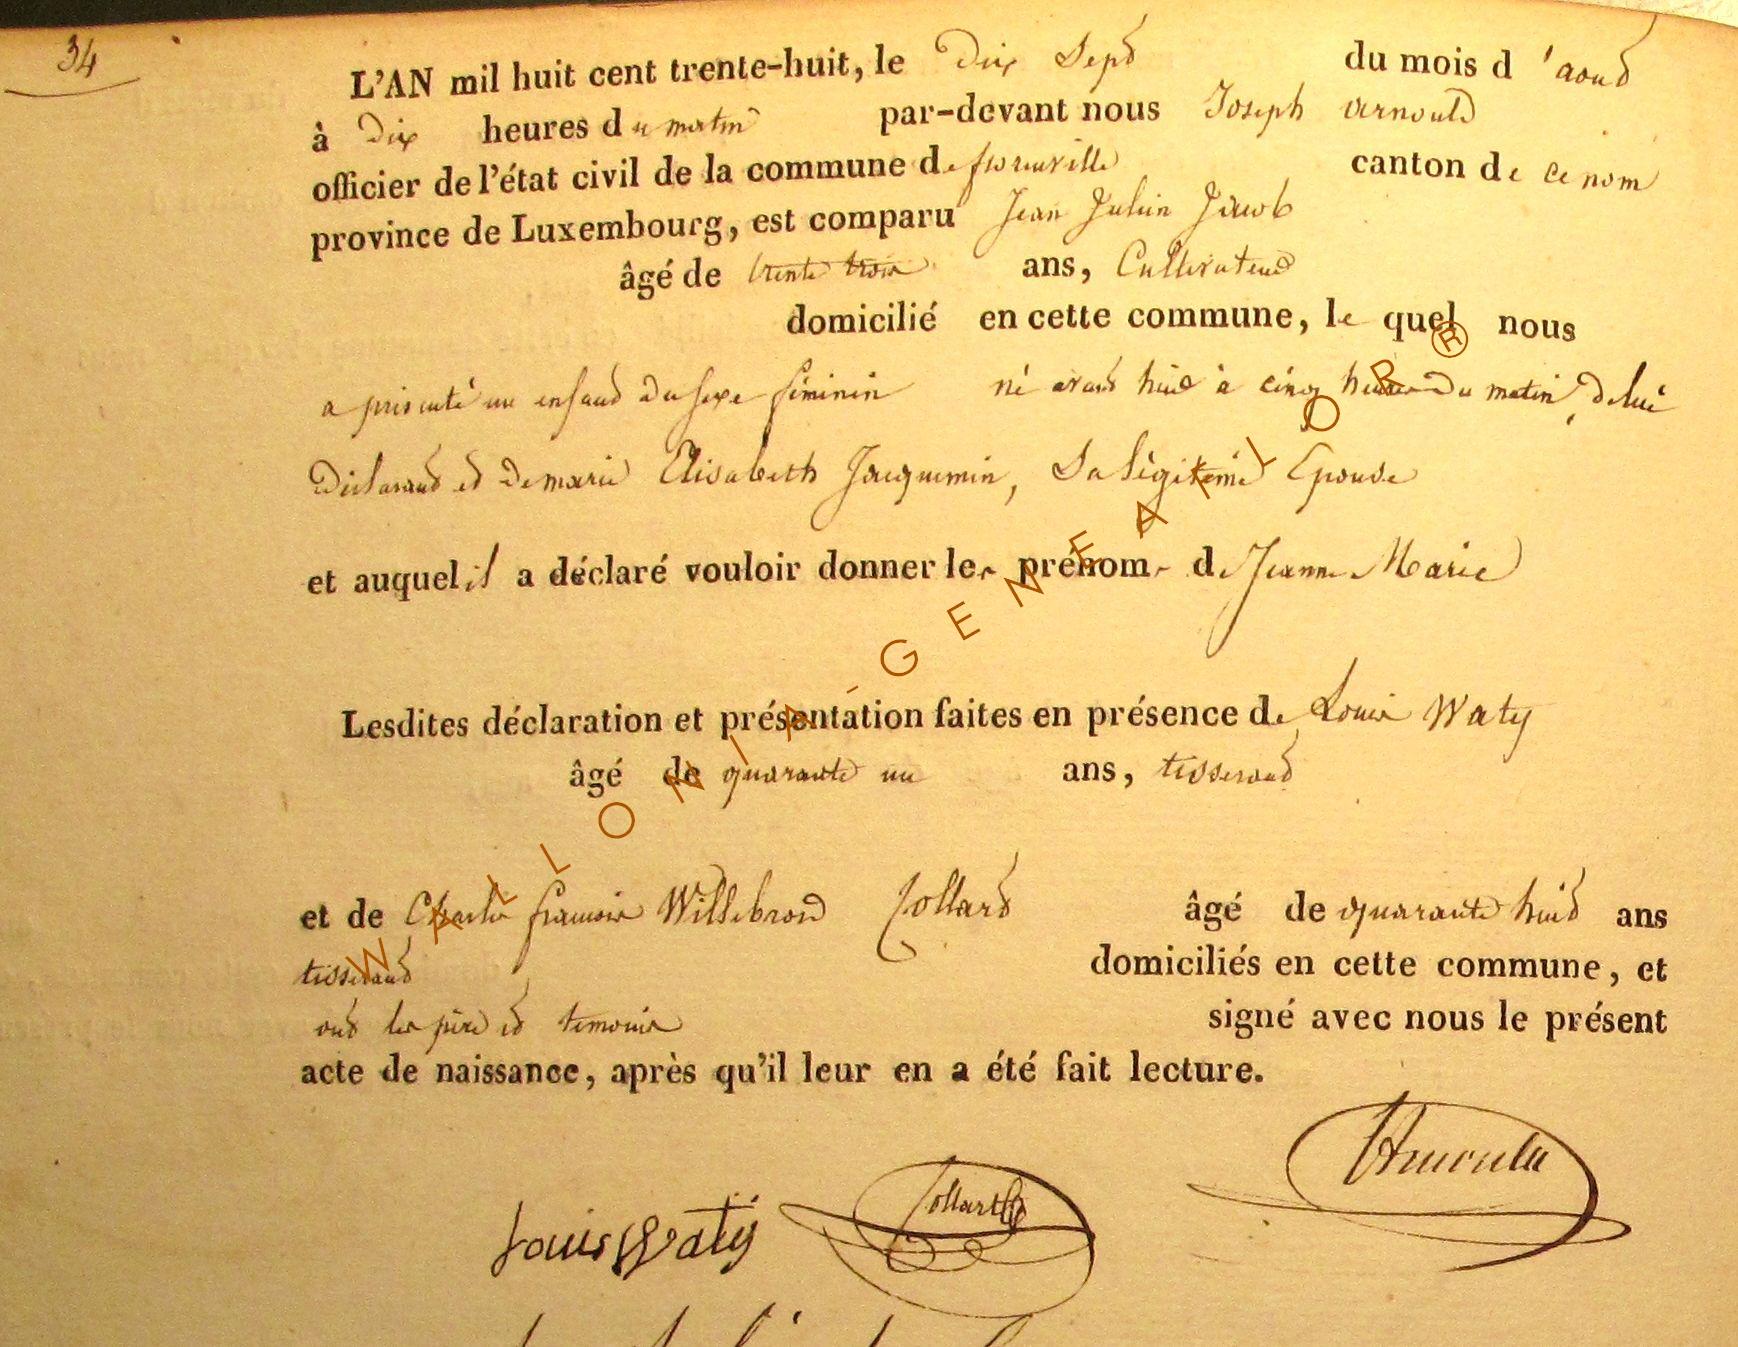 34
L'AN mil huit cent trente-huit, le dix Sept du mois d'aout
à dix heures du matin par-devant nous Joseph arnould
officier de l'état civil de la commune de florenville canton de ce nom
province de Luxembourg, est comparu Jean Julien Jacob
âgé de trente trois ans, Cultivateur
domicilié en cette commune, le quel nous
a présenté un enfant du sexe féminin né avant huit à cinq heures du matin, de lui
déclarant et de marie Elisabeth Jacquemin, Sa légitime Epouse
et auquel il a déclaré vouloir donner les prénoms de Jeanne Marie
Lesdites déclaration et présentation faites en présence de Louis Waty
âgé de quarante un ans, tisserand
et de Charles françois Willebrord Collard âgé de quarante huit ans
tisserand domiciliés en cette commune, et
ont les père et temoins signé avec nous le présent
acte de naissance, après qu'il leur en a été fait lecture.
Louis Waty Collart
WALLONIA-GENEALOR ®